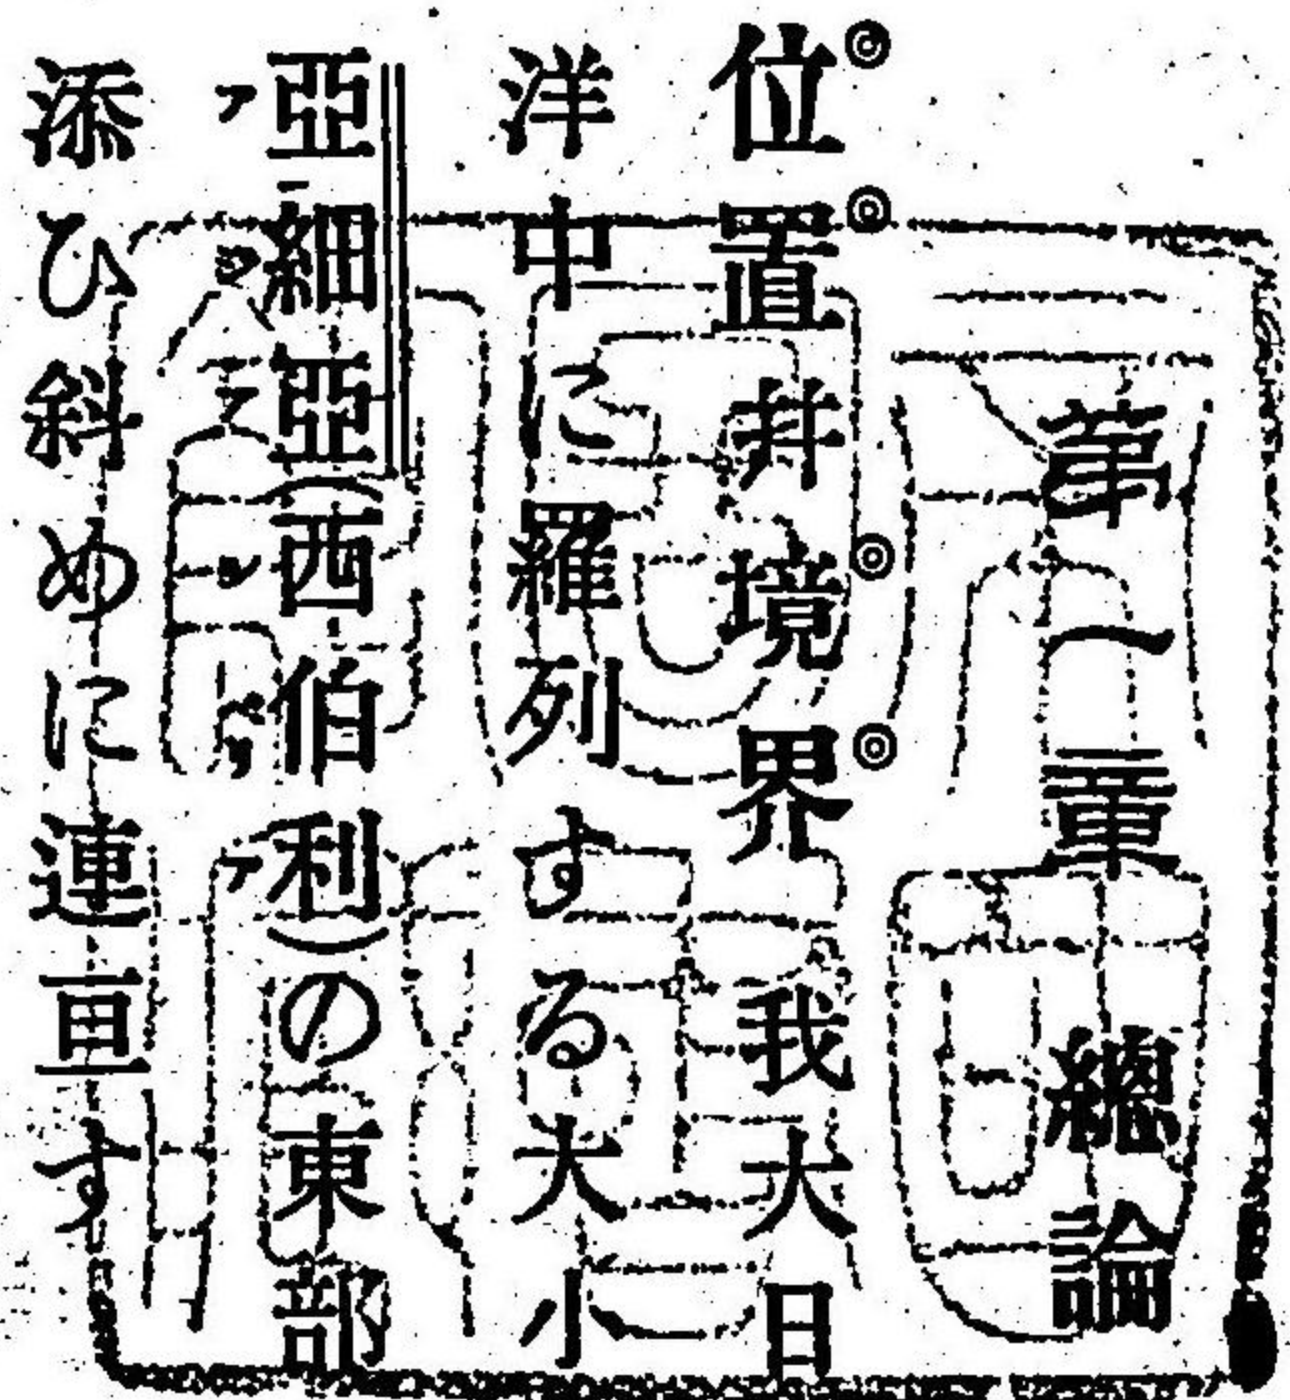 第一章總論
位置幷境界我大日
洋中に羅列する大小
亞細亞(西伯利)の東部
添ひ斜めに連亘す